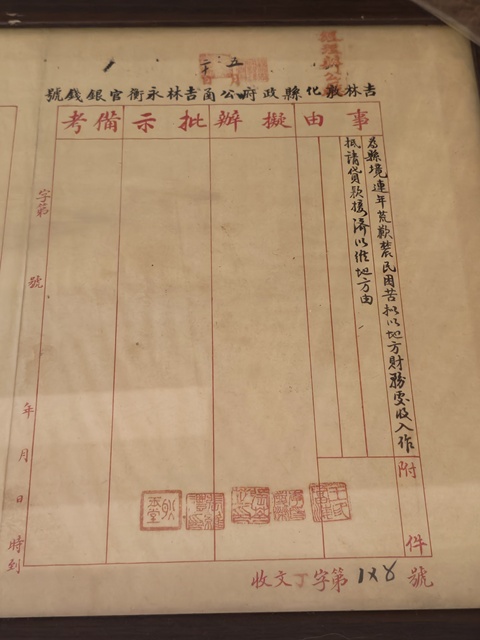 吉林敦化縣政府公函吉林永衡官銀錢號
事由
擬辦
批示
備考
為縣境連年荒歉農民困苦擬以地方財務處收入作
抵請貸款接濟以維地方由
附件
字第 號
年 月 日 時到
收文丁字第 號